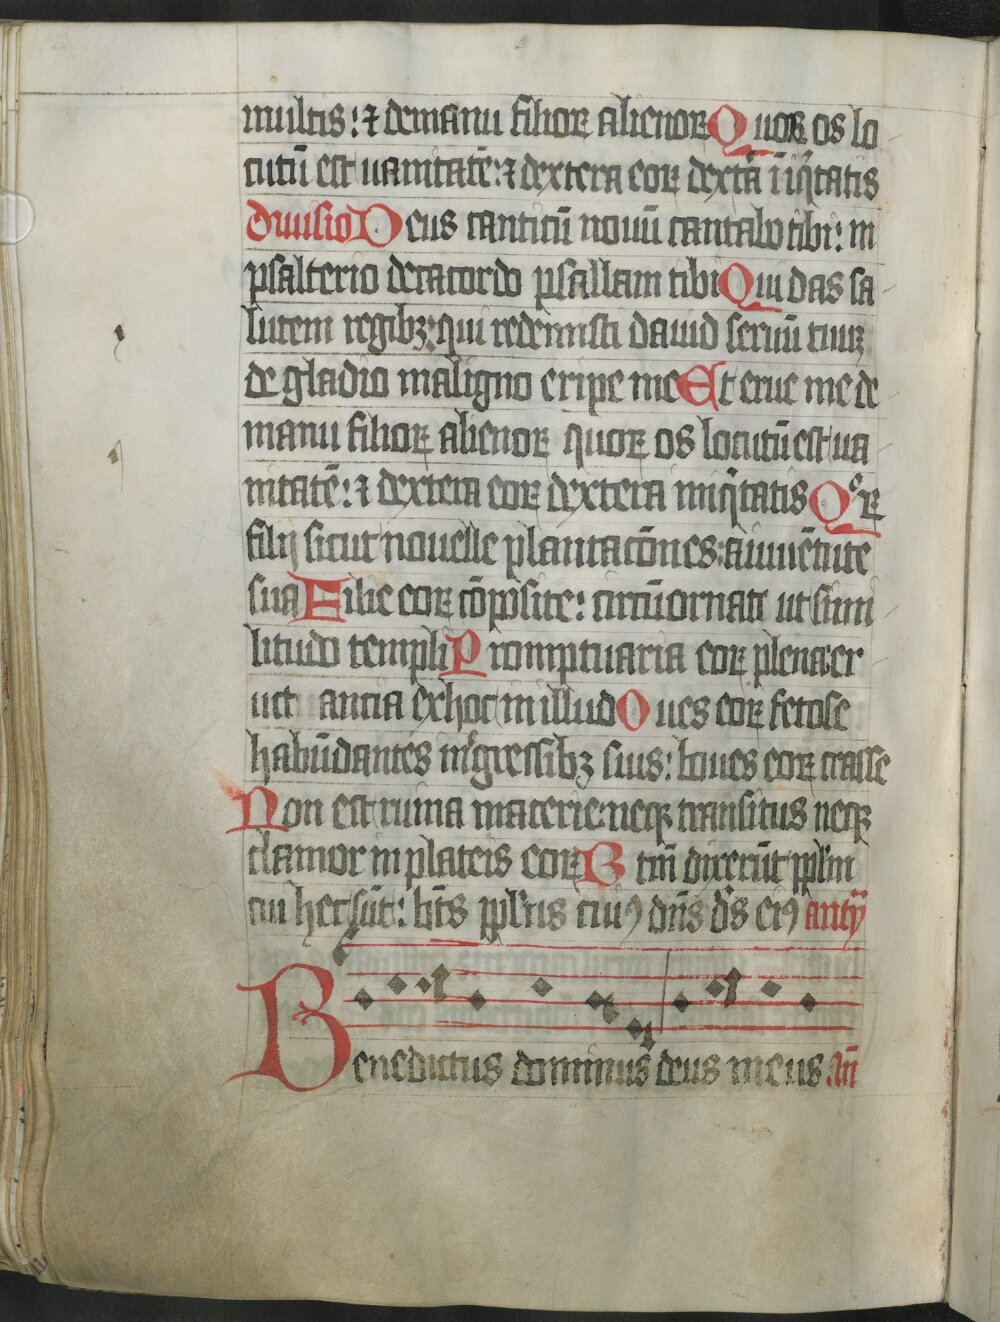 multis: ⁊ demanu filioꝝ alienoꝝ Quoꝝ os lo
cutū est uanitatē: ⁊ dextera eoꝝ dextā iīq̄tatis
diuisio Deus canticū nouū cantabo tibi: in
psalterio decacordo psallam tibi Qui das sa
lutem regibꝫ: qui redemisti dauid seruū tuuꝫ
de gladio maligno eripe me Et erue me de
manu filioꝝ alienoꝝ quoꝝ os locutū est ua
nitatē: ⁊ dextera eoꝝ dextera iniq̄tatis Qᵒꝝ
filij sicut nouelle plantatōnes: aiuuētute
sua Filie eoꝝ cōposite: circūornate ut simi
litudo templi Promptuaria eoꝝ plena: er
uct antia exhoc in illud Oues eoꝝ fetose
habūdantes ingressibꝫ suis: boues eoꝝ crasse
Non est ruina macerie: neqꝫ transitus neqꝫ
clamor in plateis eoꝝ Btm̄ dixerūt pplm
cui hec sūt: bt̄s ppl̄us cuiꝰ dn̄s ds̄ eiꝰ anty
Benedictus dominus deus meus An̄